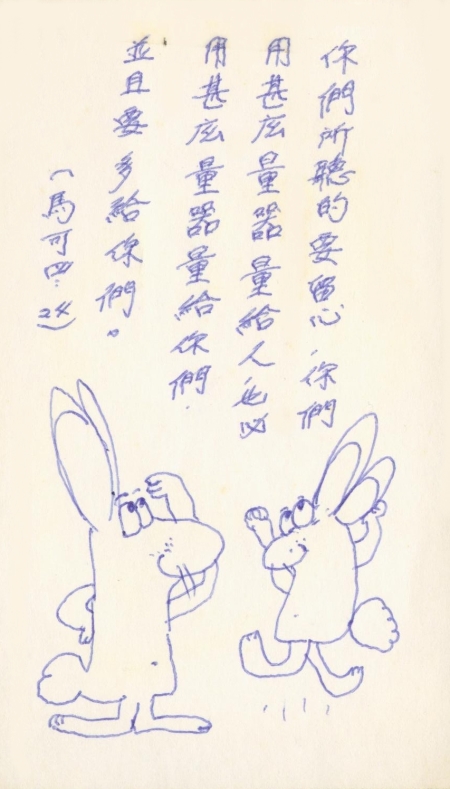 你們所聽的要留心，你們
用甚庅量器量給人，也必
用甚庅量器量給你們．
並且要多給你們。
（馬可四：24）